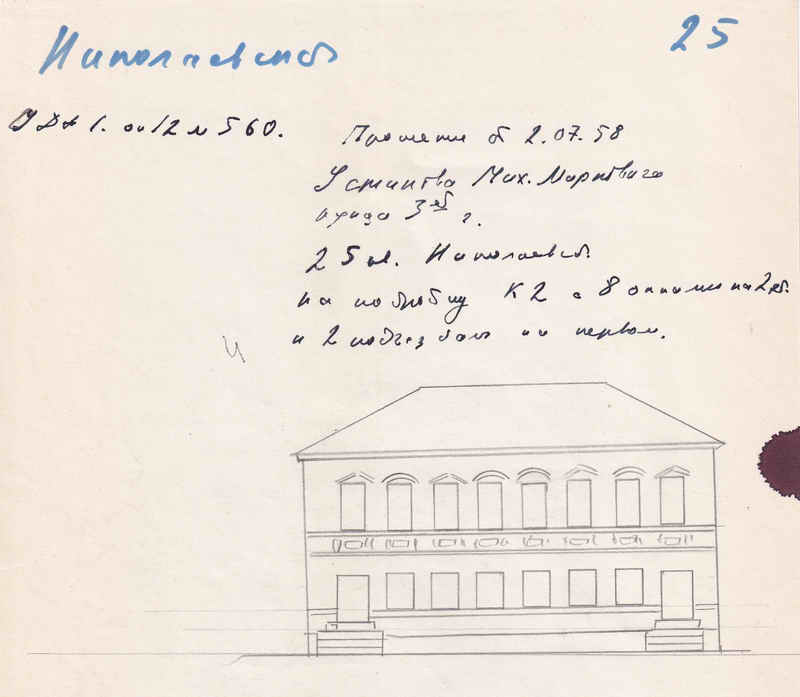 Николаевская
25
1. оп 12 № 560.
Прошение от 2.07.58
Устинова Мих. Марковича
купца 3ей г.
25 кв. Николаевск.
на постройку К2 с 8 окнами на 2 эт.
и 2 подъездами на первом.